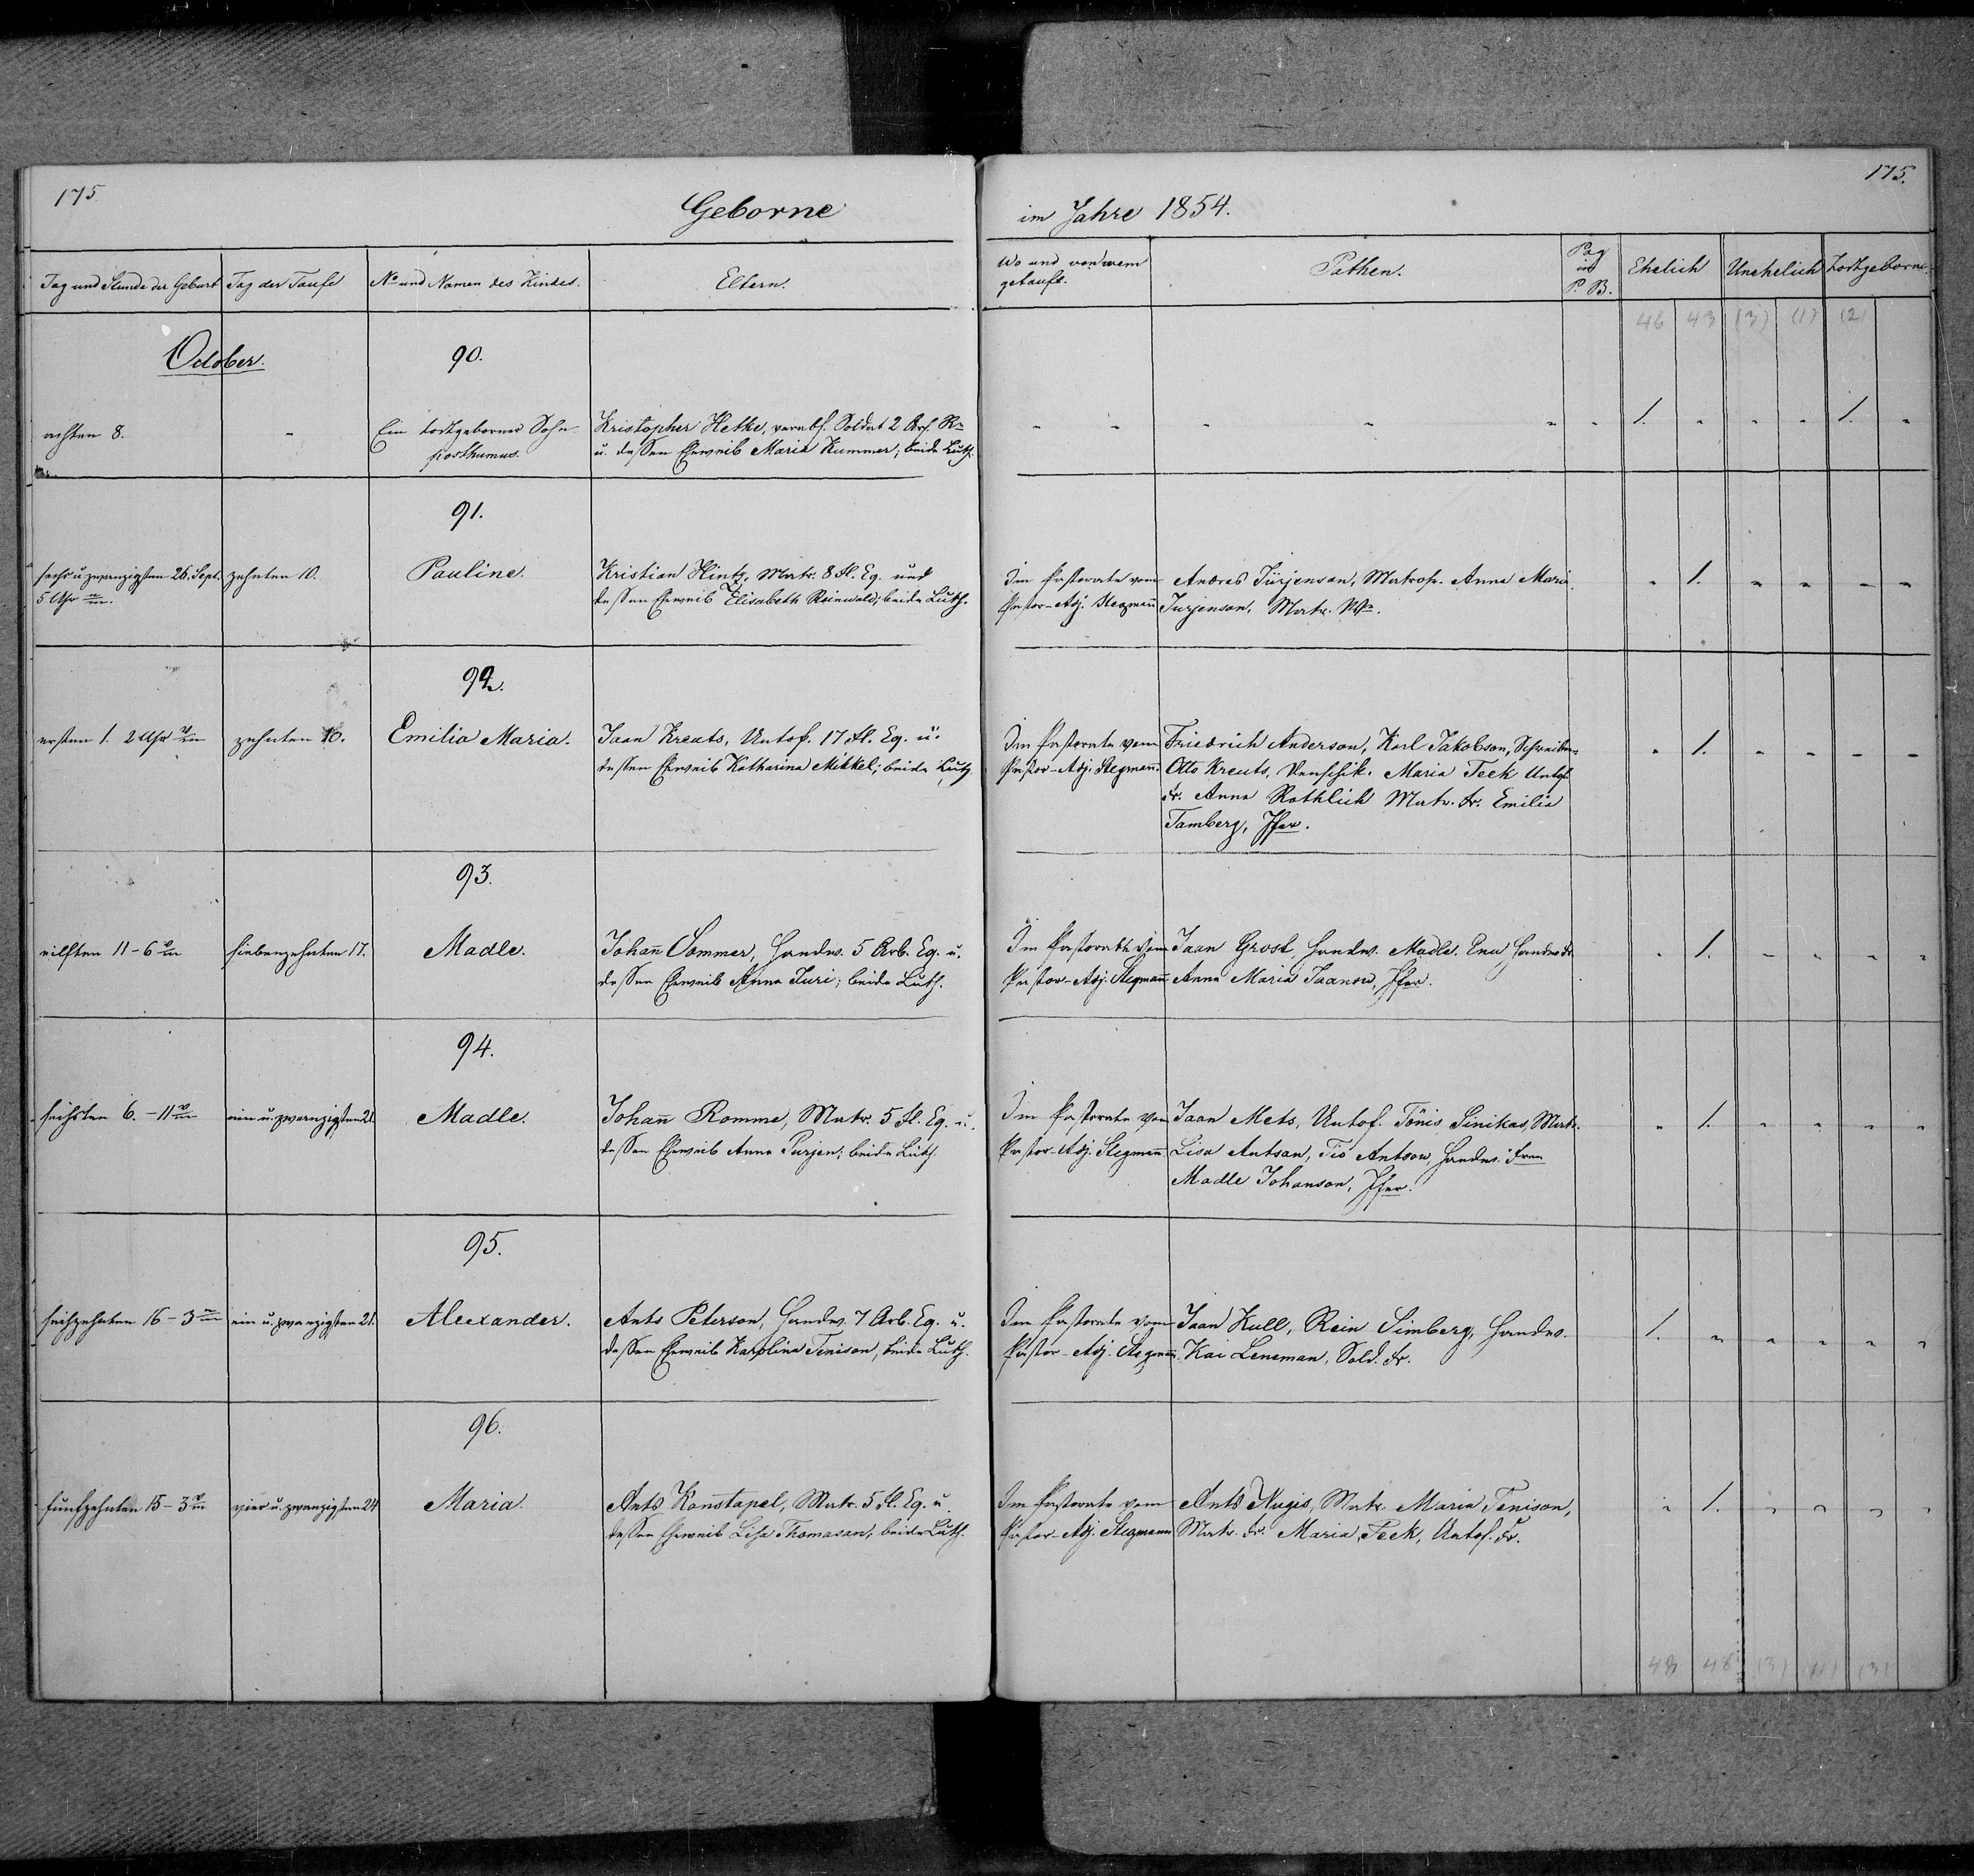 175
Geborne
im Jahre 1854.
175.
Tag und Stunde der Geburt
Tag der Taufe
No und Namen des Kindes.
Eltern.
Wo und von wem
getauft.
Pathen.
Pag
im
P. B.
Ehelich
Unehelich
Todtgeborne
46 43 (3) (1) (2)
October.
90.
achten 8.
-
Ein todtgeborner Sohn
posthumus.
Kristopher Hetke, verabs. Soldat 2 Ars.
u. dessen Eheweib Maria Kummer; beide Luth.
1. - - - 1. -
91.
sechs u. zwanzigsten 26. Sept.
5 Uhr
zehnten 10.
Pauline.
Kristian Hintz, Matr. 8 Fl. Eq. und
dessen Eheweib Elisabeth Reinwald; beide Luth.
Im Pastorate vom
Pastor-Adj. Stegmann
Andres Jürjenson, Matrose. Anna Maria
Jurjenson, Matr. We.
- 1. - - - -
92.
ersten 1. 2 Uhr
zehnten 10.
Emilia Maria.
Jaan Kreuts, Untof. 17 Fl. Eq. u.
dessen Eheweib Katharina Mikkel; beide Luth.
Im Pastorate vom
Pastor-Adj. Stegmann.
Friedrich Anderson, Karl Jakobson, Schreiber.
Otto Kreuts, Maria Teek Untof.
Fr. Anna Rothlich Matr. Fr. Emilie
Tamberg, Jfer.
- 1. - - - -
93.
eilften 11-6
siebenzehnten 17.
Madle.
Johann Sommer, Handw. 5 Arb. Eq. u.
dessen Eheweib Anna Juri; beide Luth.
Im Pastorate vom
Pastor-Adj. Stegmann
Jaan Grost, Handw. Madle Enu Handw. Fr.
Anna Maria Jaanow, Jfer.
- 1. - - - -
94.
sechsten 6.-11
ein u. zwanzigsten 21.
Madle.
Johann Romme, Matr. 5 Fl. Eq. u.
dessen Eheweib Anna Purjen; beide Luth.
Im Pastorate vom
Pastor-Adj. Stegmann.
Jaan Mets, Untof. Tönis Sinikas, Matr.
Lisa Antsan, Tio Antsow, Handw. Fren
Madle Johanson, Jfer.
- 1. - - - -
95.
sechszehnten 16-3
ein u. zwanzigsten 21.
Alexander.
Ants Peterson, Handw. 7 Arb. Eq. u.
dessen Eheweib Karolina Tenison; beide Luth.
Im Pastorate vom
Pastor-Adj. Stegmann.
Jaan Kull, Rein Simberg, Handw.
Kai Leneman, Sold. Fr.
1. - - - - -
96.
fünfzehnten 15-3
vier u. zwanzigsten 24
Maria.
Ants Konstapel, Matr. 5 Fl. Eq. u.
dessen Eheweib Lisa Thomasan; beide Luth.
Im Pastorate vom
Pastor-Adj. Stegmann
Ants Nugis, Matr. Maria Tenison,
Matr. Fr. Maria Peek, Untof. Fr.
- 1. - - - -
48 48 (3) (1) (3)